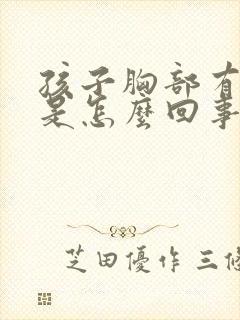 孩子胸部有
是怎麼回事
芝田優作 三